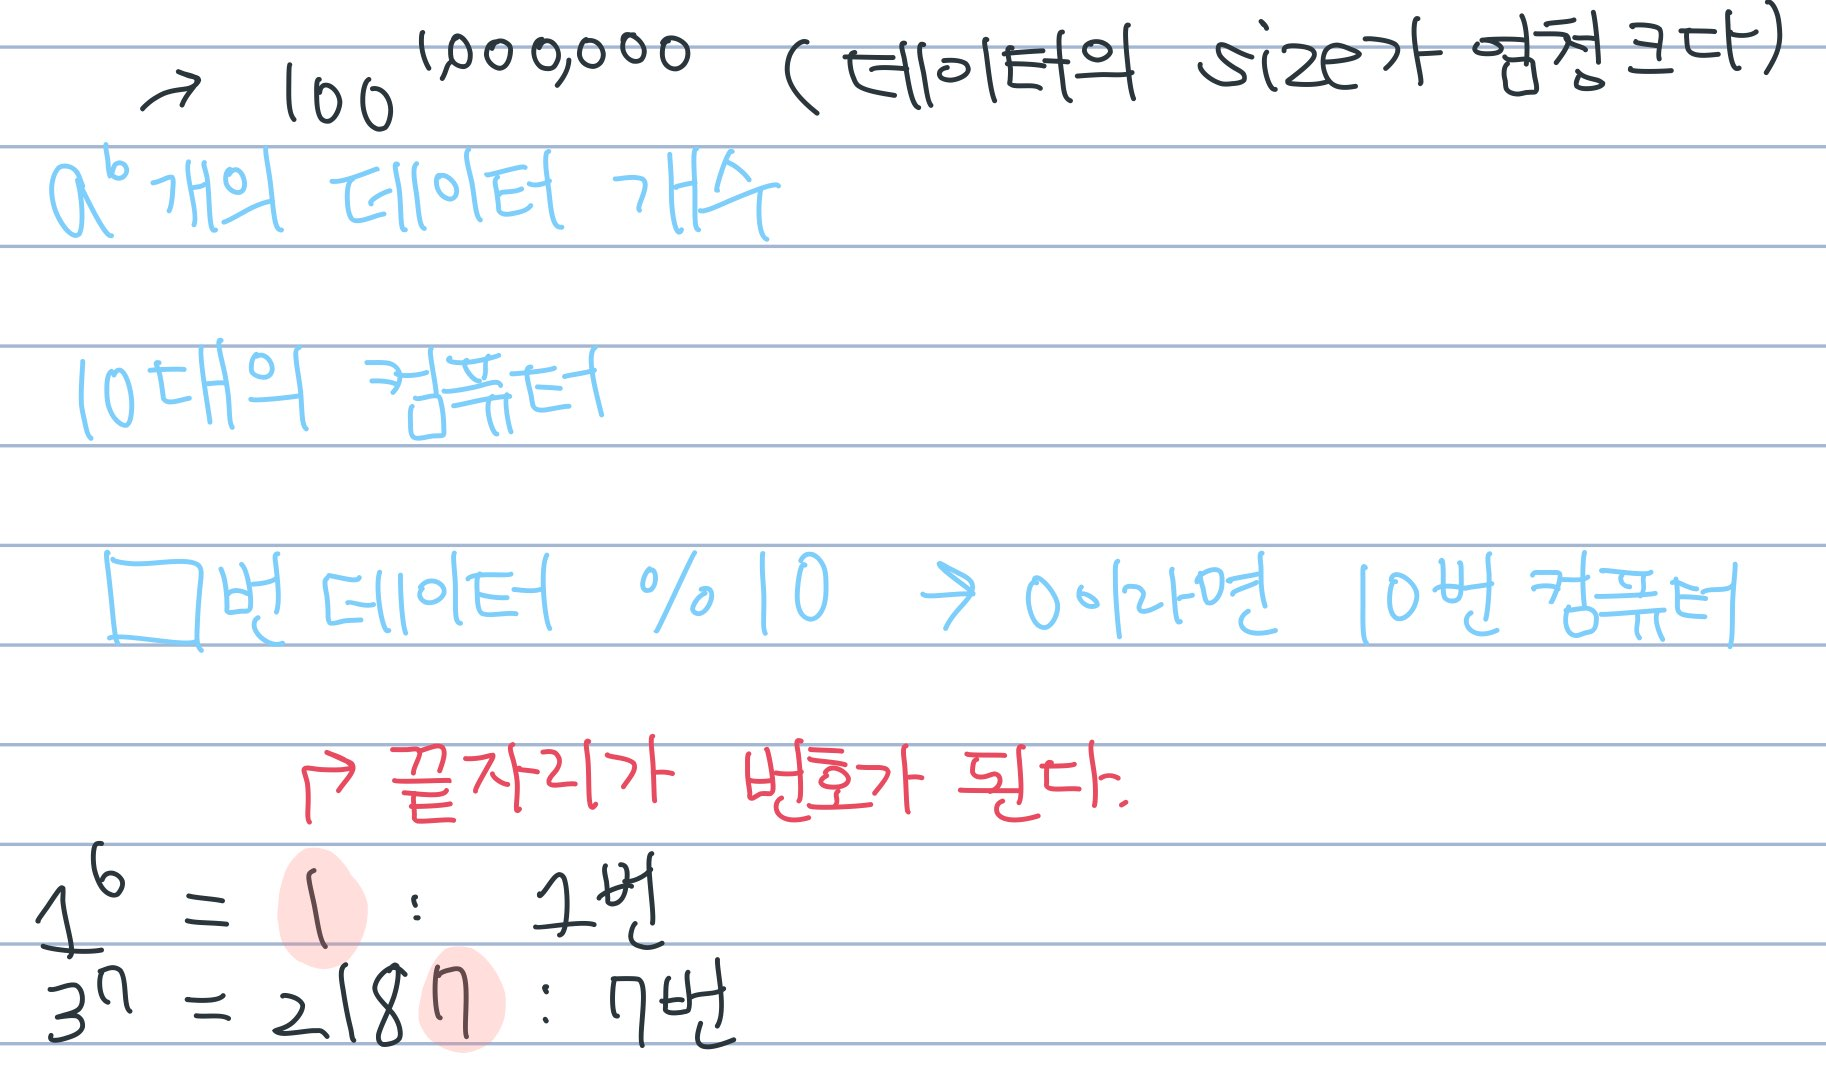 → 100^1,000,000 (데이터의 size가 엄청 크다)
a^b개의 데이터 개수
10대의 컴퓨터
□번 데이터 % 10 → 0이라면 10번 컴퓨터
↱ 끝자리가 번호가 된다.
1^6 = 1 : 1번
3^7 = 2187 : 7번